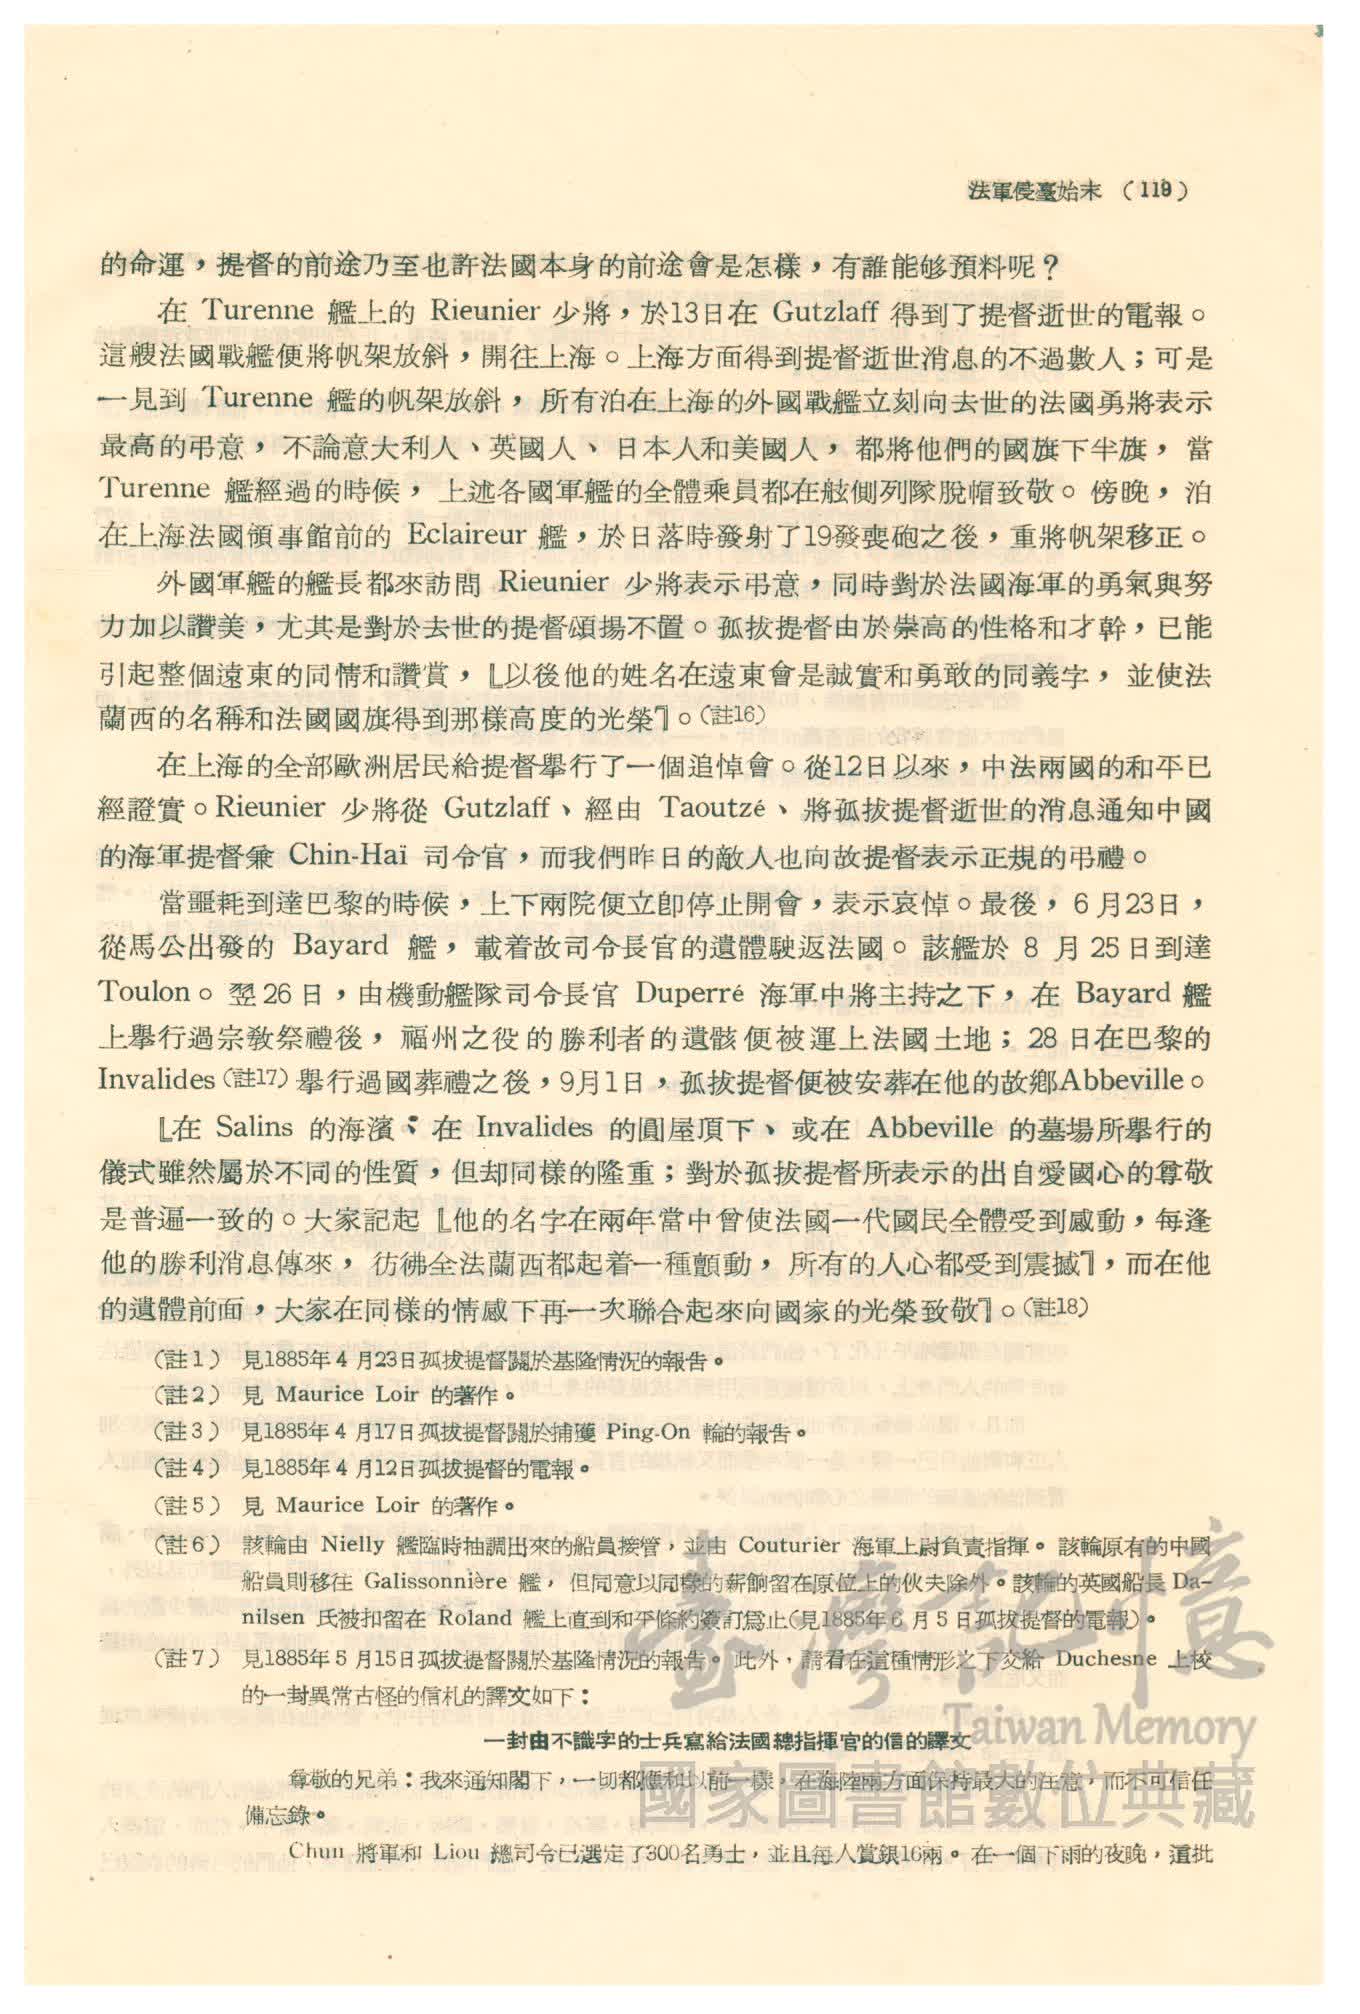 法軍侵臺始末 (119)
的命運，提督的前途乃至也許法國本身的前途會是怎樣，有誰能够預料呢？
在 Turenne 艦上的 Rieunier 少將，於13日在 Gutzlaff 得到了提督逝世的電報。
這艘法國戰艦便將帆架放斜，開往上海。上海方面得到提督逝世消息的不過數人；可是
一見到 Turenne 艦的帆架放斜，所有泊在上海的外國戰艦立刻向去世的法國勇將表示
最高的弔意，不論意大利人、英國人、日本人和美國人，都將他們的國旗下半旗，當
Turenne 艦經過的時候，上述各國軍艦的全體乘員都在舷側列隊脫帽致敬。傍晚，泊
在上海法國領事館前的 Eclaireur 艦，於日落時發射了19發喪砲之後，重將帆架移正。
外國軍艦的艦長都來訪問 Rieunier 少將表示弔意，同時對於法國海軍的勇氣與努
力加以讚美，尤其是對於去世的提督頌揚不置。孤拔提督由於崇高的性格和才幹，已能
引起整個遠東的同情和讚賞，『以後他的姓名在遠東會是誠實和勇敢的同義字，並使法
蘭西的名稱和法國國旗得到那樣高度的光榮』。(註16)
在上海的全部歐洲居民給提督舉行了一個追悼會。從12日以來，中法兩國的和平已
經證實。Rieunier 少將從 Gutzlaff、經由 Taoutzé、將孤拔提督逝世的消息通知中國
的海軍提督兼 Chin-Haï 司令官，而我們昨日的敵人也向故提督表示正規的弔禮。
當噩耗到達巴黎的時候，上下兩院便立卽停止開會，表示哀悼。最後，6月23日，
從馬公出發的 Bayard 艦，載着故司令長官的遺體駛返法國。該艦於 8 月 25 日到達
Toulon。翌26日，由機動艦隊司令長官 Duperré 海軍中將主持之下，在 Bayard 艦
上舉行過宗敎祭禮後，福州之役的勝利者的遺骸便被運上法國土地；28 日在巴黎的
Invalides (註17) 舉行過國葬禮之後，9月1日，孤拔提督便被安葬在他的故鄉Abbeville。
『在 Salins 的海濱；在 Invalides 的圓屋頂下、或在 Abbeville 的墓場所舉行的
儀式雖然屬於不同的性質，但却同樣的隆重；對於孤拔提督所表示的出自愛國心的尊敬
是普遍一致的。大家記起『他的名字在兩年當中曾使法國一代國民全體受到感動，每逢
他的勝利消息傳來，彷彿全法蘭西都起着一種顫動，所有的人心都受到震撼』，而在他
的遺體前面，大家在同樣的情感下再一次聯合起來向國家的光榮致敬』。(註18)
(註1) 見1885年 4 月23日孤拔提督關於基隆情況的報告。
(註2) 見 Maurice Loir 的著作。
(註3) 見1885年 4 月17日孤拔提督關於捕獲 Ping-On 輪的報告。
(註4) 見1885年 4 月12日孤拔提督的電報。
(註5) 見 Maurice Loir 的著作。
(註6) 該輪由 Nielly 艦臨時抽調出來的船員接管，並由 Couturier 海軍上尉負責指揮。該輪原有的中國
船員則移往 Galissonnière 艦，但同意以同樣的薪餉留在原位上的伙夫除外。該輪的英國船長 Da-
nilsen 氏被扣留在 Roland 艦上直到和平條約簽訂爲止(見1885年 6 月 5 日孤拔提督的電報)。
(註7) 見1885年 5 月15日孤拔提督關於基隆情況的報告。此外，請看在這種情形之下交給 Duchesne 上校
的一封異常古怪的信札的譯文如下：
一封由不識字的士兵寫給法國總指揮官的信的譯文
尊敬的兄弟：我來通知閣下，一切都應和以前一樣，在海陸兩方面保持最大的注意，而不可信任
備忘錄。
Chun 將軍和 Liou 總司令已選定了300名勇士，並且每人賞銀16兩。在一個下雨的夜晚，這批
臺灣記憶
Taiwan Memory
國家圖書館數位典藏